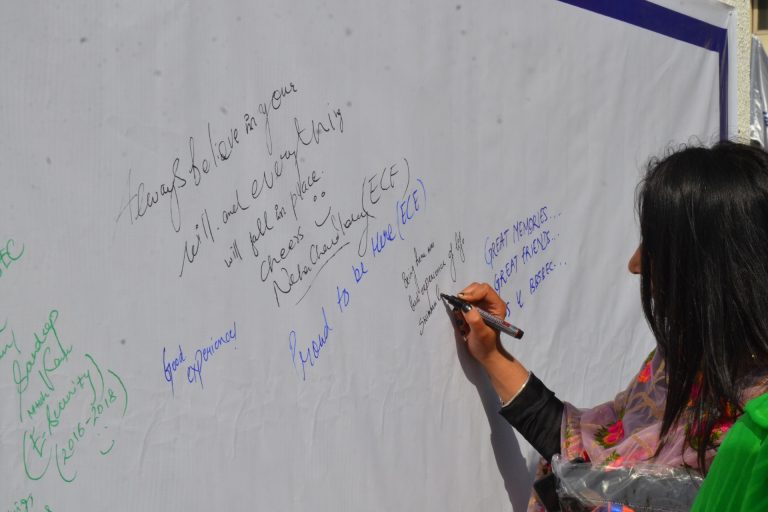 Always believe in your
will and everything
will fall in place.
Cheers
Neha Chaudhary (ECE)
Proud to be Here (ECE)
Good
experience!
Being here
best experience of life
GREAT MEMORIES....
GREAT FRIENDS...
BBSBEC...
EC
Sandeep
(E-Security)
(2016-2018)